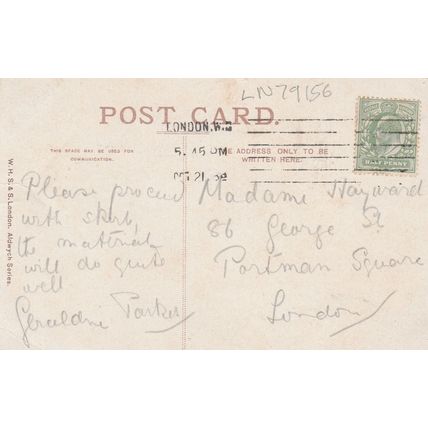 LN79156
POST CARD.
LONDON. W.
5. 45 PM
OCT 21.
THIS SPACE MAY BE USED FOR
COMMUNICATION.
THE ADDRESS ONLY TO BE
WRITTEN HERE.
HALFPENNY
W.H.S. & S. London. Aldwych Series.
Please proceed
with skirt,
the material
will do quite
well
Geraldine Parkes
Madame Hayward
86 George St
Portman Square
London